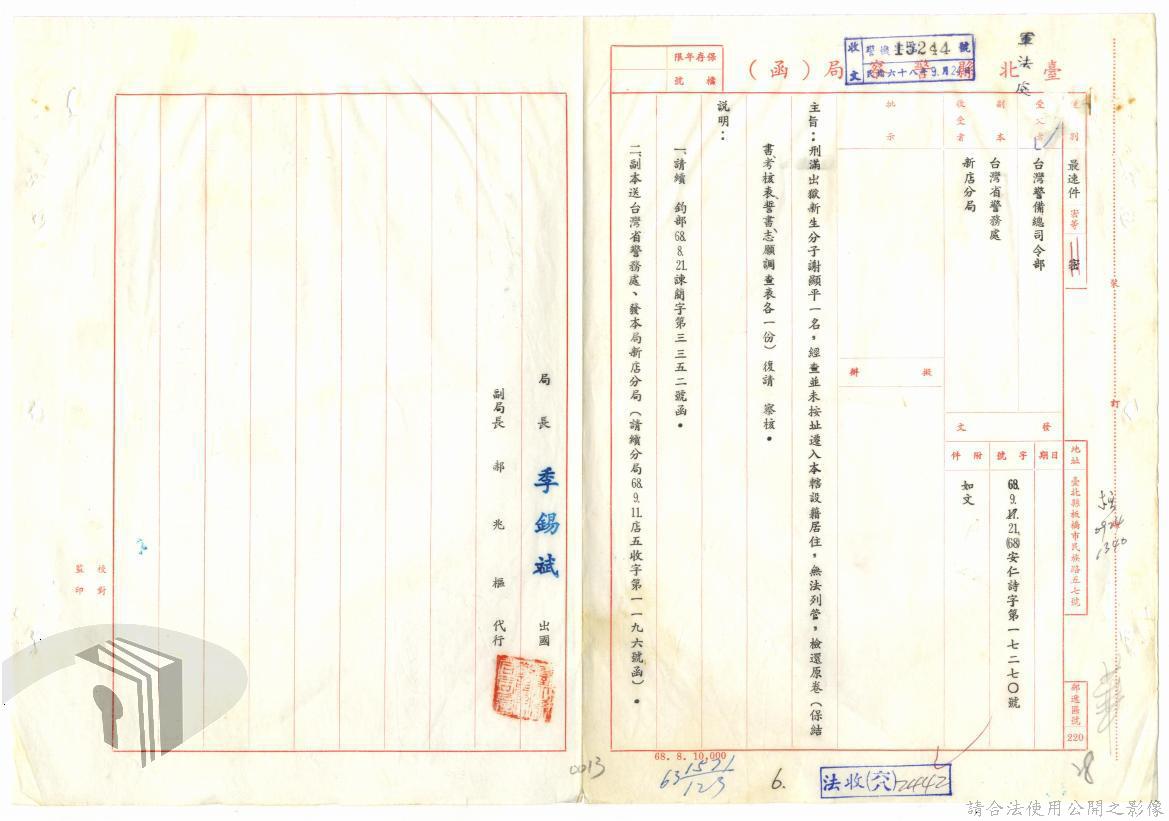 臺北縣警察局（函）
軍法處
收文 警機 15244 號
民國六十八年9.月24日
保存年限
檔號
速別 最速件
密等 密
地址 臺北縣板橋市民族路五七號
郵遞區號 220
受文者 台灣警備總司令部
副本收受者 台灣省警務處
新店分局
批示
擬辦
發文
日期 字號 附件
68.9.21.(68)安仁詩字第一七二七〇號
如文
主旨：刑滿出獄新生分子謝顯平一名，經查並未按址遷入本轄設籍居住，無法列管，檢還原卷（保結
書、考核表、誓書、志願調查表各一份）復請　察核。
說明：
一、請續　鈞部68.8.21.諫簡字第三三五二號函。
二、副本送台灣省警務處、發本局新店分局（請續分局68.9.11.店五收字第一一九六號函）。
局長 季錫斌 出國
副局長 郝兆樞 代行
校對
監印
裝
訂
68. 8. 10,000
63 1521/123
6.
法收(六八)12442
0013
28
0924
1340
請合法使用公開之影像